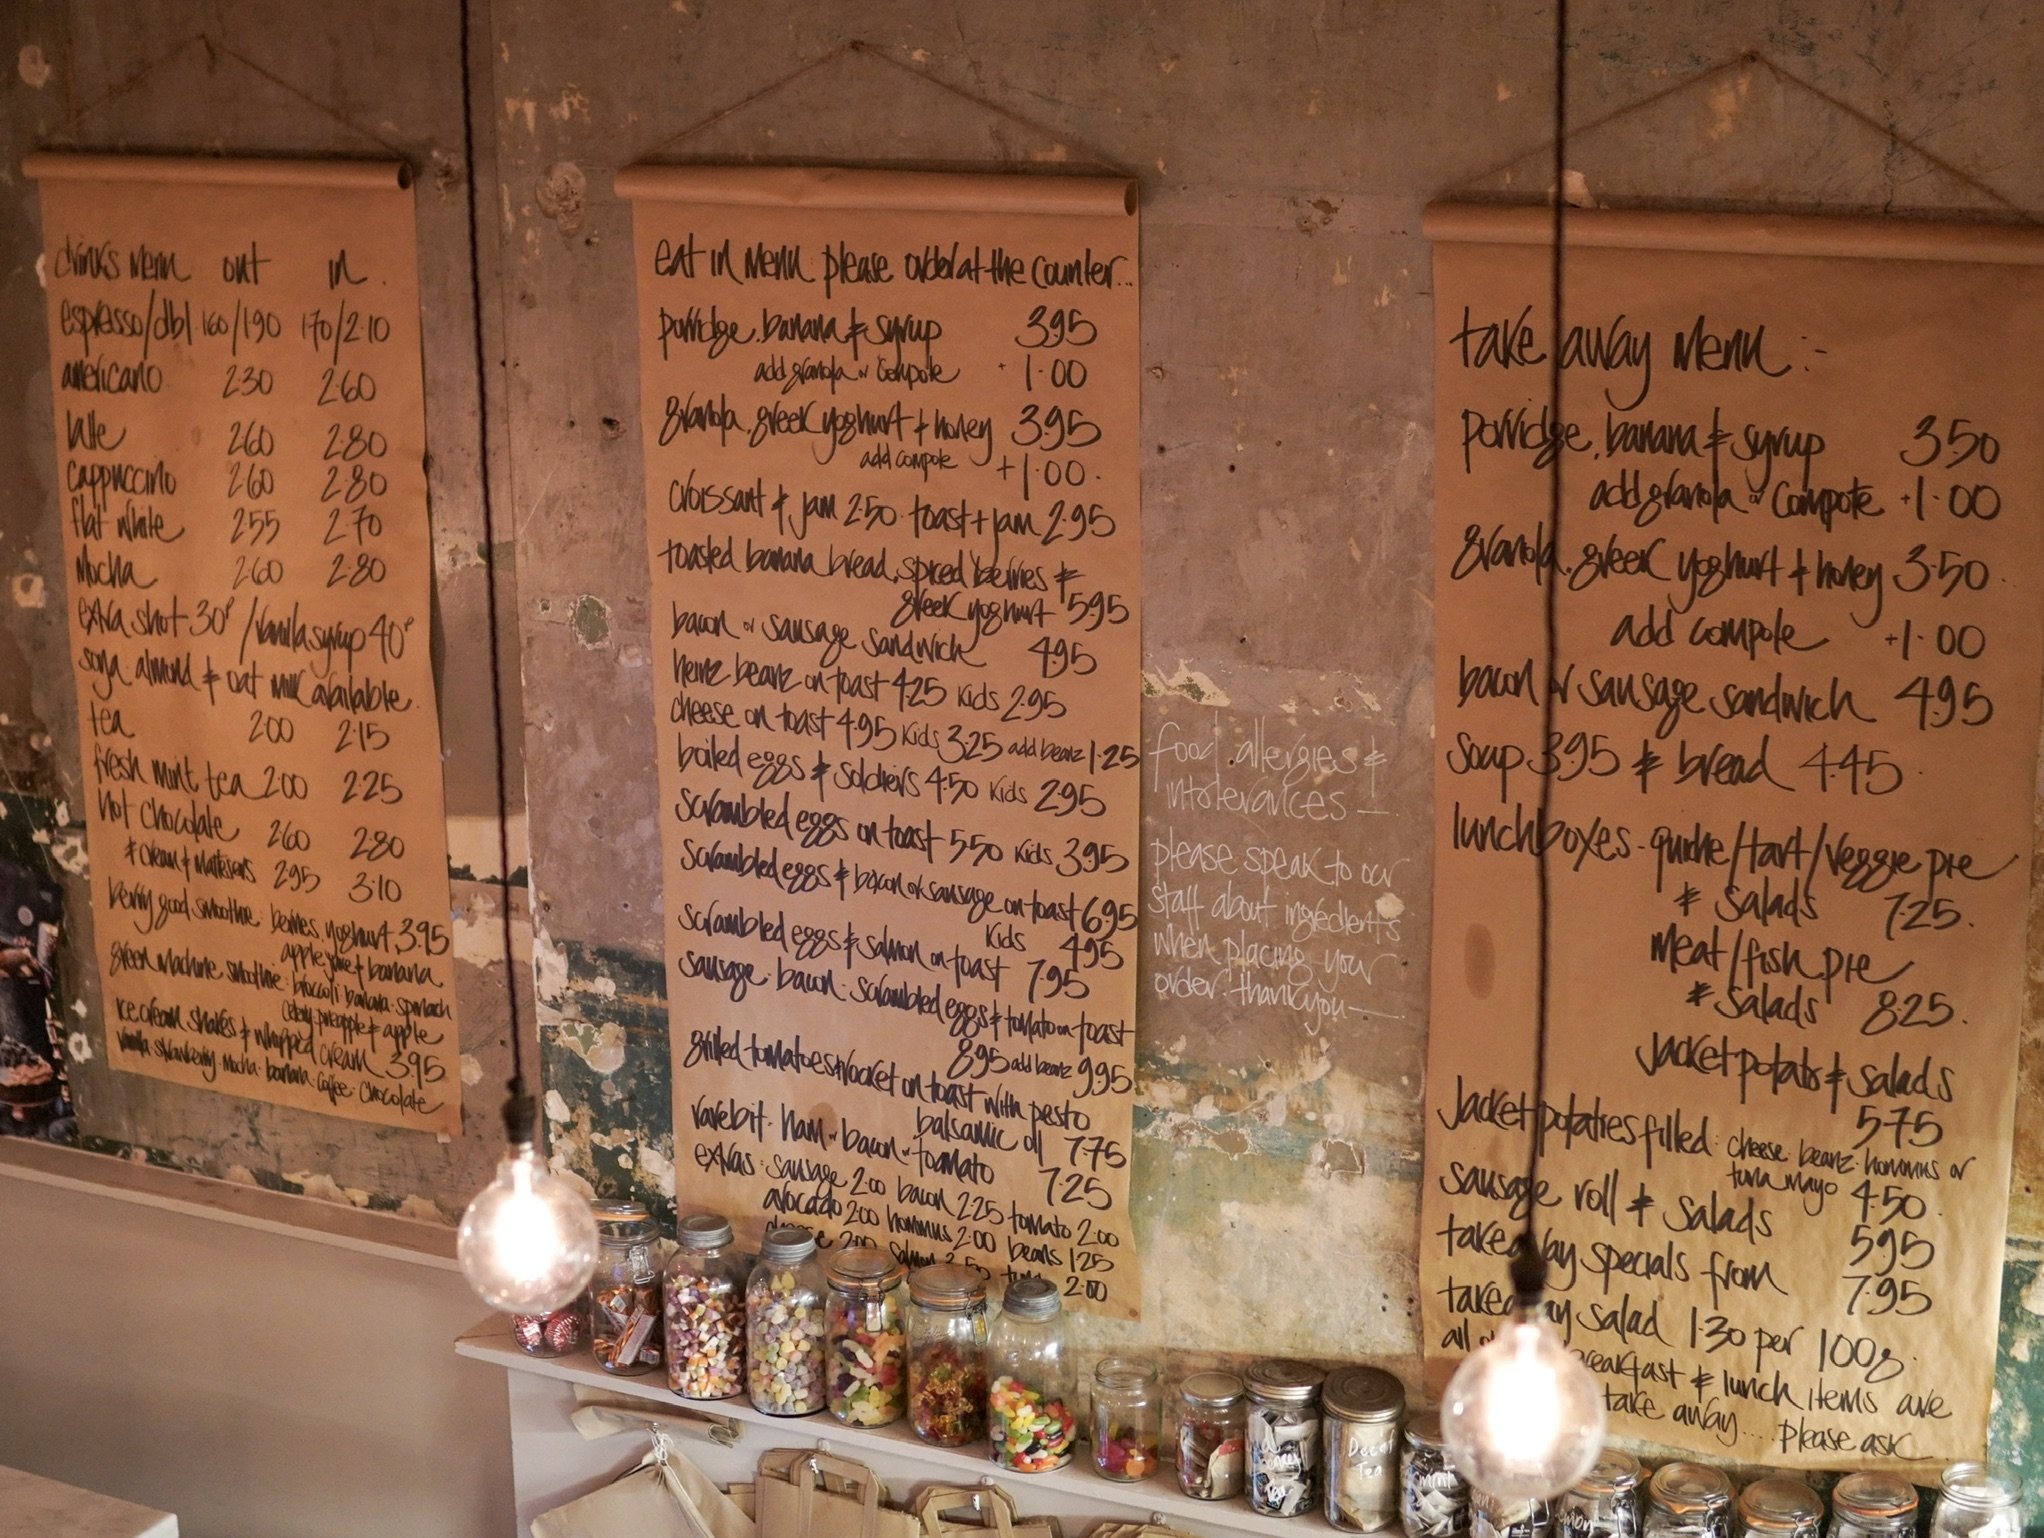 drinks menu out in.
espresso/dbl 160/190 170/2.10
americano 230 2.60
latte 260 2.80
cappuccino 260 2.80
flat white 255 2.70
mocha 260 2.80
extra shot 30p/vanilla syrup 40p
soya. almond & oat milk available.
tea 200 2.15
fresh mint tea 200 225
hot chocolate 260 280
& cream & maltesers 295 3.10
berry good smoothie: berries, yoghurt, 3.95
apple juice & banana
green machine smoothie: broccoli. banana. spinach
celery. pineapple & apple
ice cream shakes & whipped cream 395
vanilla. strawberry. mocha. banana. coffee. chocolate
eat in menu: please order at the counter...
porridge. banana & syrup 395
add granola or compote + 1.00
granola. greek yoghurt + honey 3.95
add compote +1.00.
croissant & jam 2.50. toast + jam 2.95
toasted banana bread, spiced berries &
greek yoghurt 595
bacon or sausage sandwich 495
heinz beanz on toast 425 kids 2.95
cheese on toast 4.95 kids 3.25 add beanz 1.25
boiled eggs & soldiers 4.50 kids 2.95
scrambled eggs on toast 550 kids 395
scrambled eggs & bacon or sausage on toast 695
kids 495
scrambled eggs & salmon on toast 7.95
sausage. bacon. scrambled eggs & tomato on toast
895 add beanz 995
grilled tomatoes & rocket on toast with pesto
balsamic oil 7.75
rarebit. ham or bacon or tomato 7.25
extras: sausage 2.00 bacon 2.25 tomato 2.00
avocado 2.00 hommus 2.00 beans 125
2.00 salmon 3.50 2.00
food allergies &
intolerances —
please speak to our
staff about ingredients
when placing your
order. thankyou —
take away menu :-
porridge. banana & syrup 3.50
add granola or compote +1.00
granola. greek yoghurt + honey 3.50
add compote +1.00
bacon or sausage sandwich 4.95
soup 3.95 & bread 4.45
lunchboxes - quiche/tart/veggie pie
& salads 7.25.
meat/fish pie
& salads 8.25.
jacket potato & salads
5.75
jacket potatoes filled: cheese. beanz. hommus or
tuna mayo 4.50
sausage roll & salads 595
takeaway specials from 7.95
takeaway salad 1.30 per 100g.
all breakfast & lunch items are
take away.... please ask
Decaf
Tea